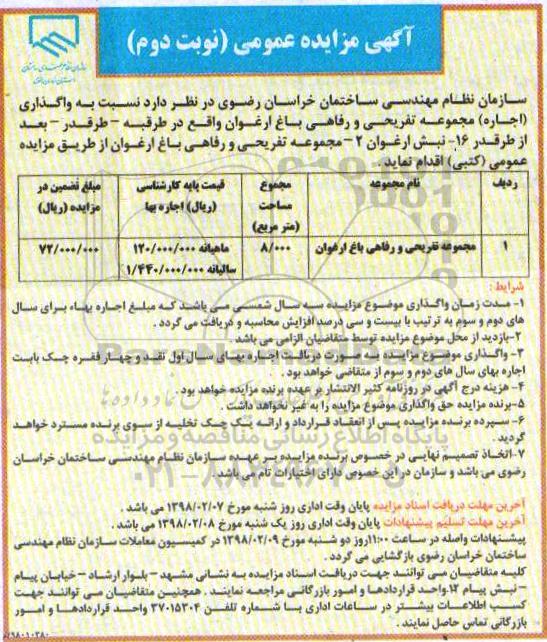 آگهی مزایده عمومی (نوبت دوم)
سازمان نظام مهندسی ساختمان خراسان رضوی در نظر دارد نسبت به واگذاری
(اجاره) مجموعه تفریحی و رفاهی باغ ارغوان واقع در طرقبه – طرقدر – بعد
از طرقدر ۱۶- نبش ارغوان ۲ – مجموعه تفریحی و رفاهی باغ ارغوان از طریق مزایده
عمومی (کتبی) اقدام نماید .
ردیف نام مجموعه مجموع مساحت (متر مربع) قیمت پایه کارشناسی (ریال) اجاره بها مبلغ تضمین در مزایده (ریال)
۱ مجموعه تفریحی و رفاهی باغ ارغوان ۸/۰۰۰ ماهیانه ۱۲۰/۰۰۰/۰۰۰ ۷۲/۰۰۰/۰۰۰
سالیانه ۱/۴۴۰/۰۰۰/۰۰۰
شرایط :
۱- مدت زمان واگذاری موضوع مزایده سه سال شمسی می باشد که مبلغ اجاره بهاء برای سال
های دوم و سوم به ترتیب با بیست و سی درصد افزایش محاسبه و دریافت می گردد .
۲-بازدید از محل موضوع مزایده توسط متقاضیان الزامی می باشد .
۳- واگذاری موضوع مزایده به صورت دریافت اجاره بهای سال اول نقد و چهار فقره چک بابت
اجاره بهای سال های دوم و سوم از متقاضی خواهد بود .
۴- هزینه درج آگهی در روزنامه کثیر الانتشار بر عهده برنده مزایده خواهد بود .
۵-برنده مزایده حق واگذاری موضوع مزایده را به غیر نخواهد داشت .
۶- سپرده برنده مزایده پس از انعقاد قرارداد و ارائه یک چک تخلیه از سوی برنده مسترد خواهد
گردید .
۷-اتخاذ تصمیم نهایی در خصوص برنده مزایده بر عهده سازمان نظام مهندسی ساختمان خراسان
رضوی می باشد و سازمان در این خصوص دارای اختیارات تام می باشد .
آخرین مهلت دریافت اسناد مزایده پایان وقت اداری روز شنبه مورخ ۱۳۹۸/۰۲/۰۷ می باشد .
آخرین مهلت تسلیم پیشنهادات پایان وقت اداری روز یک شنبه مورخ ۱۳۹۸/۰۲/۰۸ می باشد .
پیشنهادات واصله در ساعت ۱۱:۰۰روز دو شنبه مورخ ۱۳۹۸/۰۲/۰۹ در کمیسیون معاملات سازمان نظام مهندسی
ساختمان خراسان رضوی بازگشایی می گردد .
کلیه متقاضیان می توانند جهت دریافت اسناد مزایده به نشانی مشهد – بلوار ارشاد – خیابان پیام
– نبش پیام ۱۲ واحد قراردادها و امور بازرگانی مراجعه نمایند . همچنین متقاضیان می توانند جهت
کسب اطلاعات بیشتر در ساعات اداری با شماره تلفن ۳۷۰۱۵۳۰۴ واحد قراردادها و امور
بازرگانی تماس حاصل نمایند .